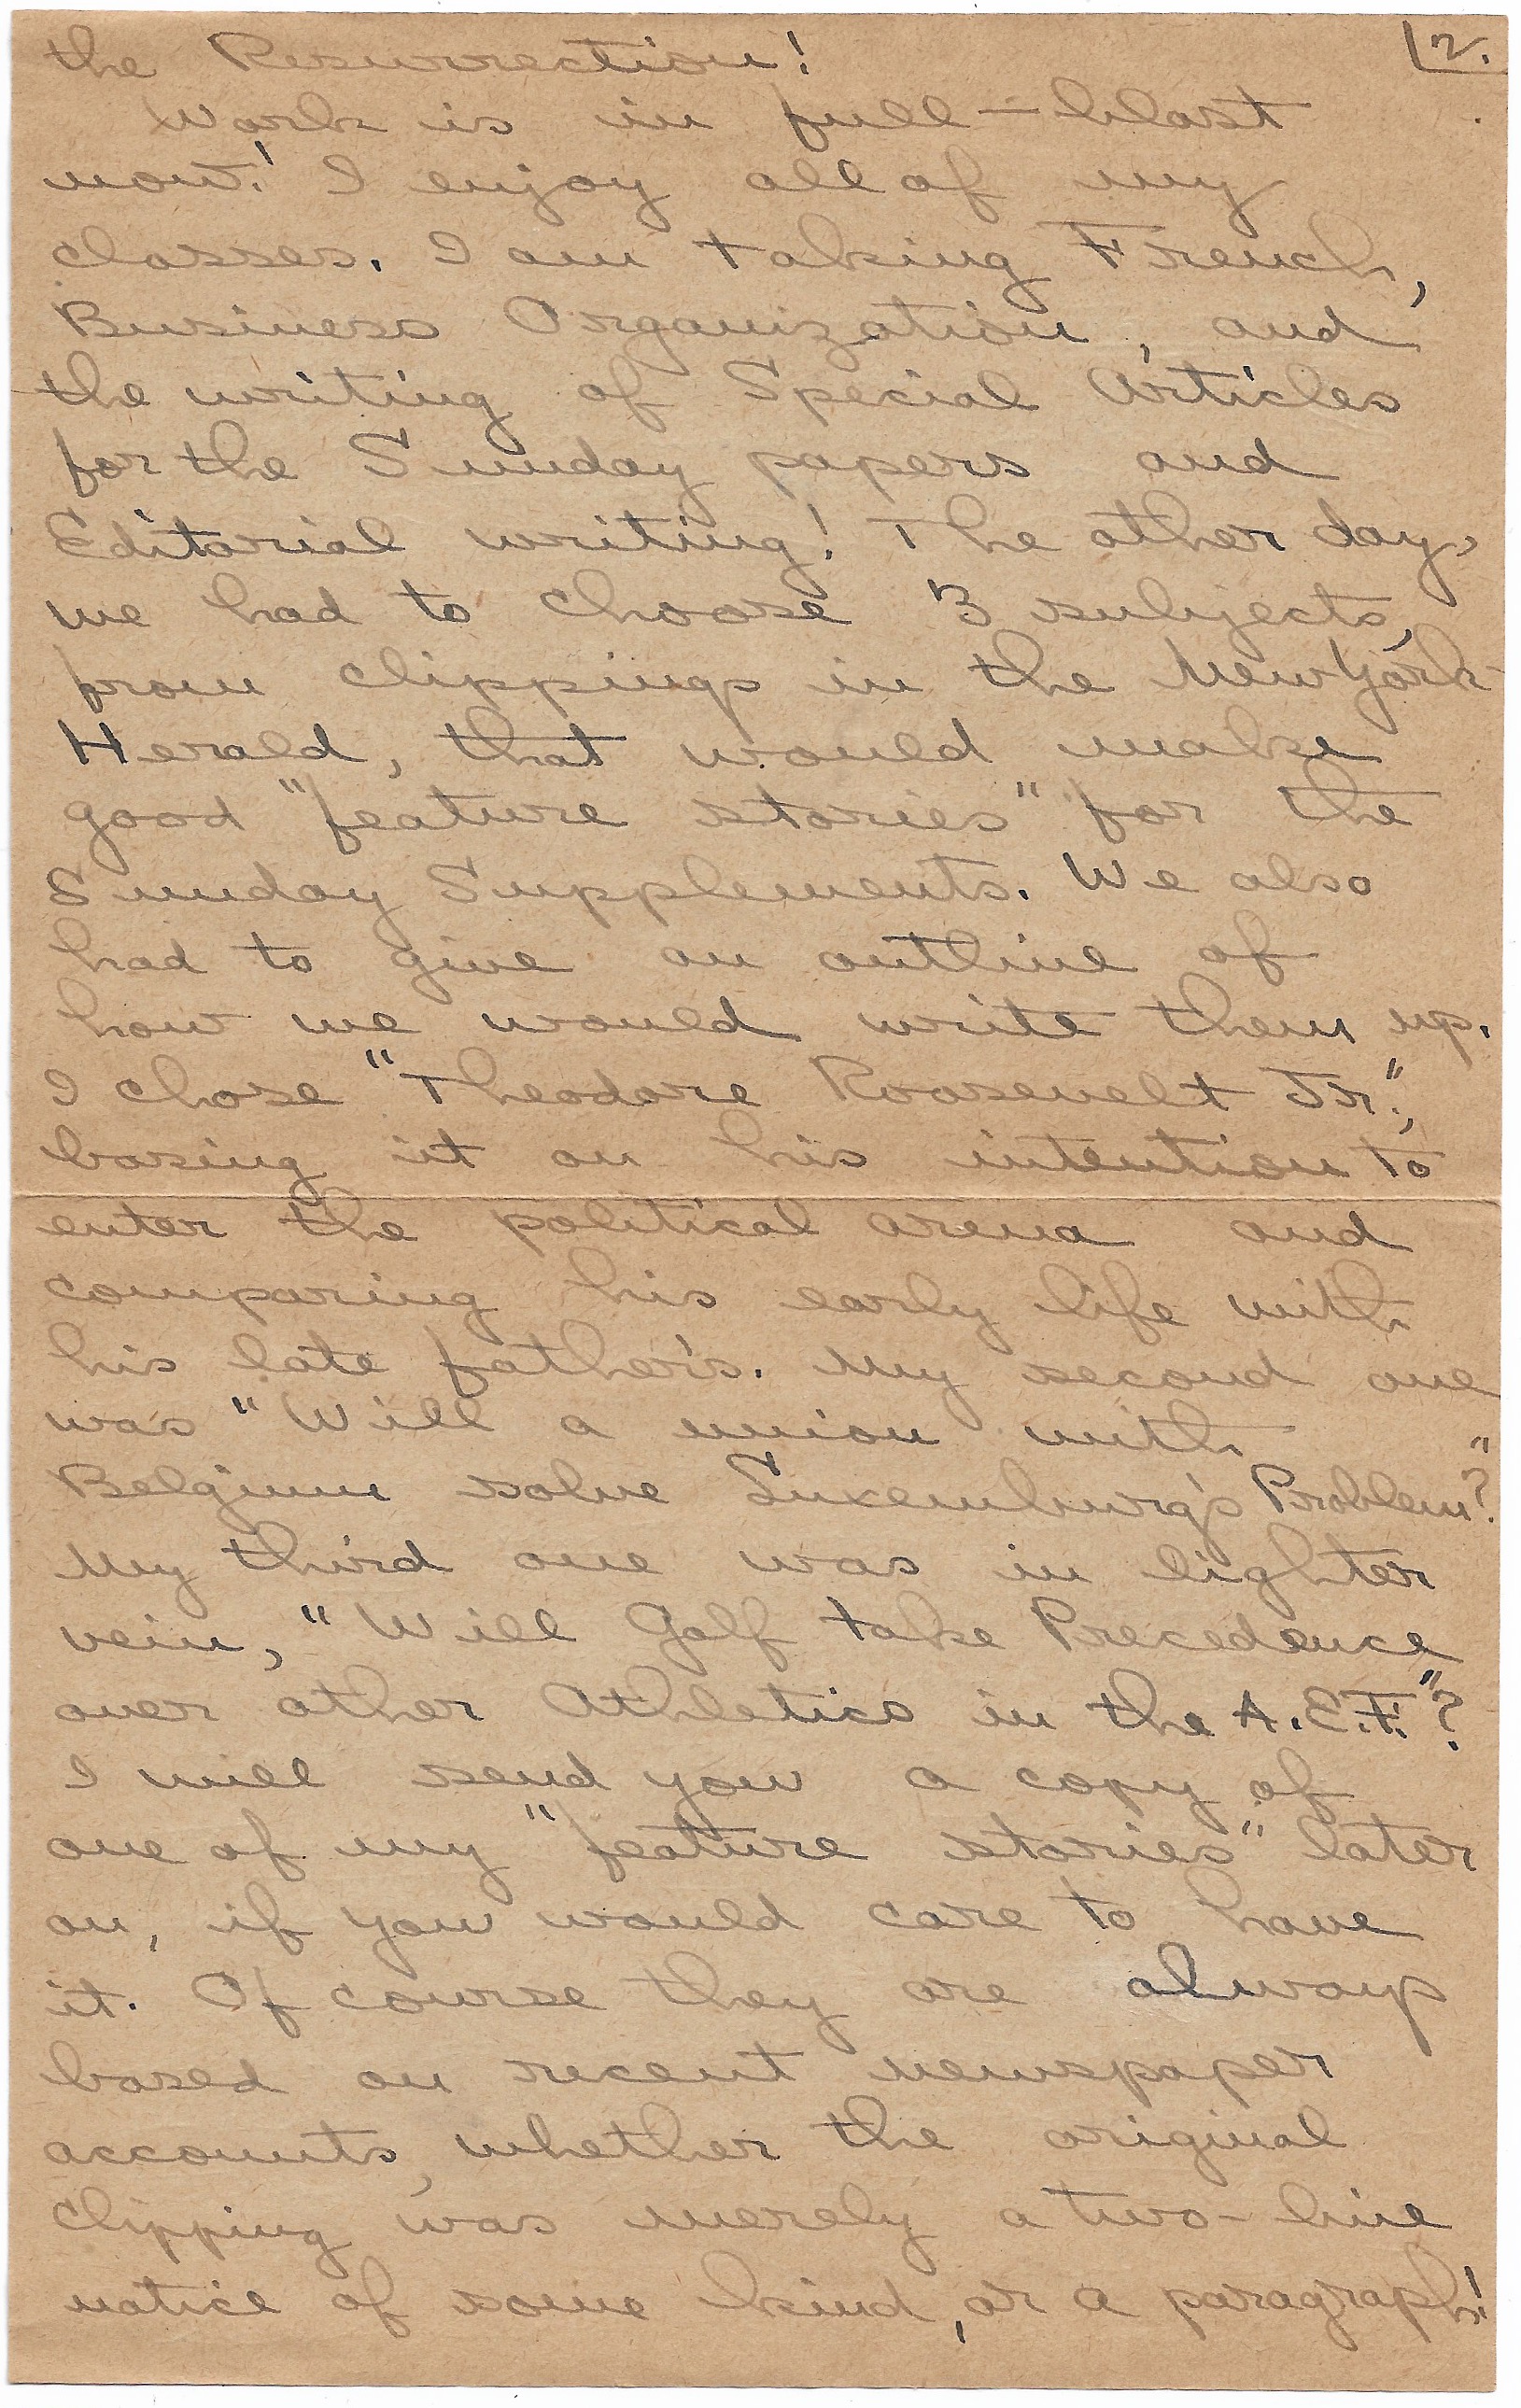 the Resurrection! 2.
Work is in full-blast
now! I enjoy all of my
classes. I am taking French,
Business Organization, and
the writing of Special Articles
for the Sunday papers and
Editorial writing! The other day,
we had to choose 3 subjects,
from clippings in the New York
Herald, that would make
good "feature stories" for the
Sunday Supplements. We also
had to give an outline of
how we would write them up.
I chose "Theodore Roosevelt Jr.",
basing it on his intention to
enter the political arena and
comparing his early life with
his late father's. My second one
was "Will a union with
Belgium solve Luxemburg's Problem"?
My third one was in lighter
vein, "Will Golf take Precedence
over other Athletics in the A.E.F."?
I will send you a copy of
one of my "feature stories" later
on, if you would care to have
it. Of course they are always
based on recent newspaper
accounts, whether the original
clipping was merely a two-line
notice of some kind, or a paragraph!